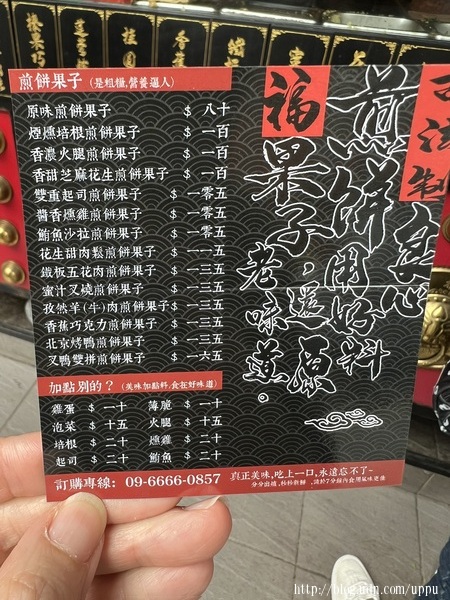 煎餅果子 (是粗糧,營養逼人)
原味煎餅果子 $ 八十
煙燻培根煎餅果子 $ 一百
香濃火腿煎餅果子 $ 一百
香甜芝麻花生煎餅果子 $ 一百
雙重起司煎餅果子 $ 一零五
醬香燻雞煎餅果子 $ 一零五
鮪魚沙拉煎餅果子 $ 一零五
花生甜肉鬆煎餅果子 $ 一一五
鐵板五花肉煎餅果子 $ 一三五
蜜汁叉燒煎餅果子 $ 一三五
孜然羊(牛)肉煎餅果子 $ 一三五
香蕉巧克力煎餅果子 $ 一三五
北京烤鴨煎餅果子 $ 一三五
叉鴨雙拼煎餅果子 $ 一六五
加點別的？ (美味加點料,食在好味道)
雞蛋 $ 一十 薄脆 $ 一十
泡菜 $ 十五 火腿 $ 十五
培根 $ 二十 燻雞 $ 二十
起司 $ 二十 鮪魚 $ 二十
古法製 良心
煎餅用好料
福 果子·還原
老味道。
訂購專線: 09-6666-0857
真正美味,吃上一口,永遠忘不了~
http://blog.udn.com/uppu